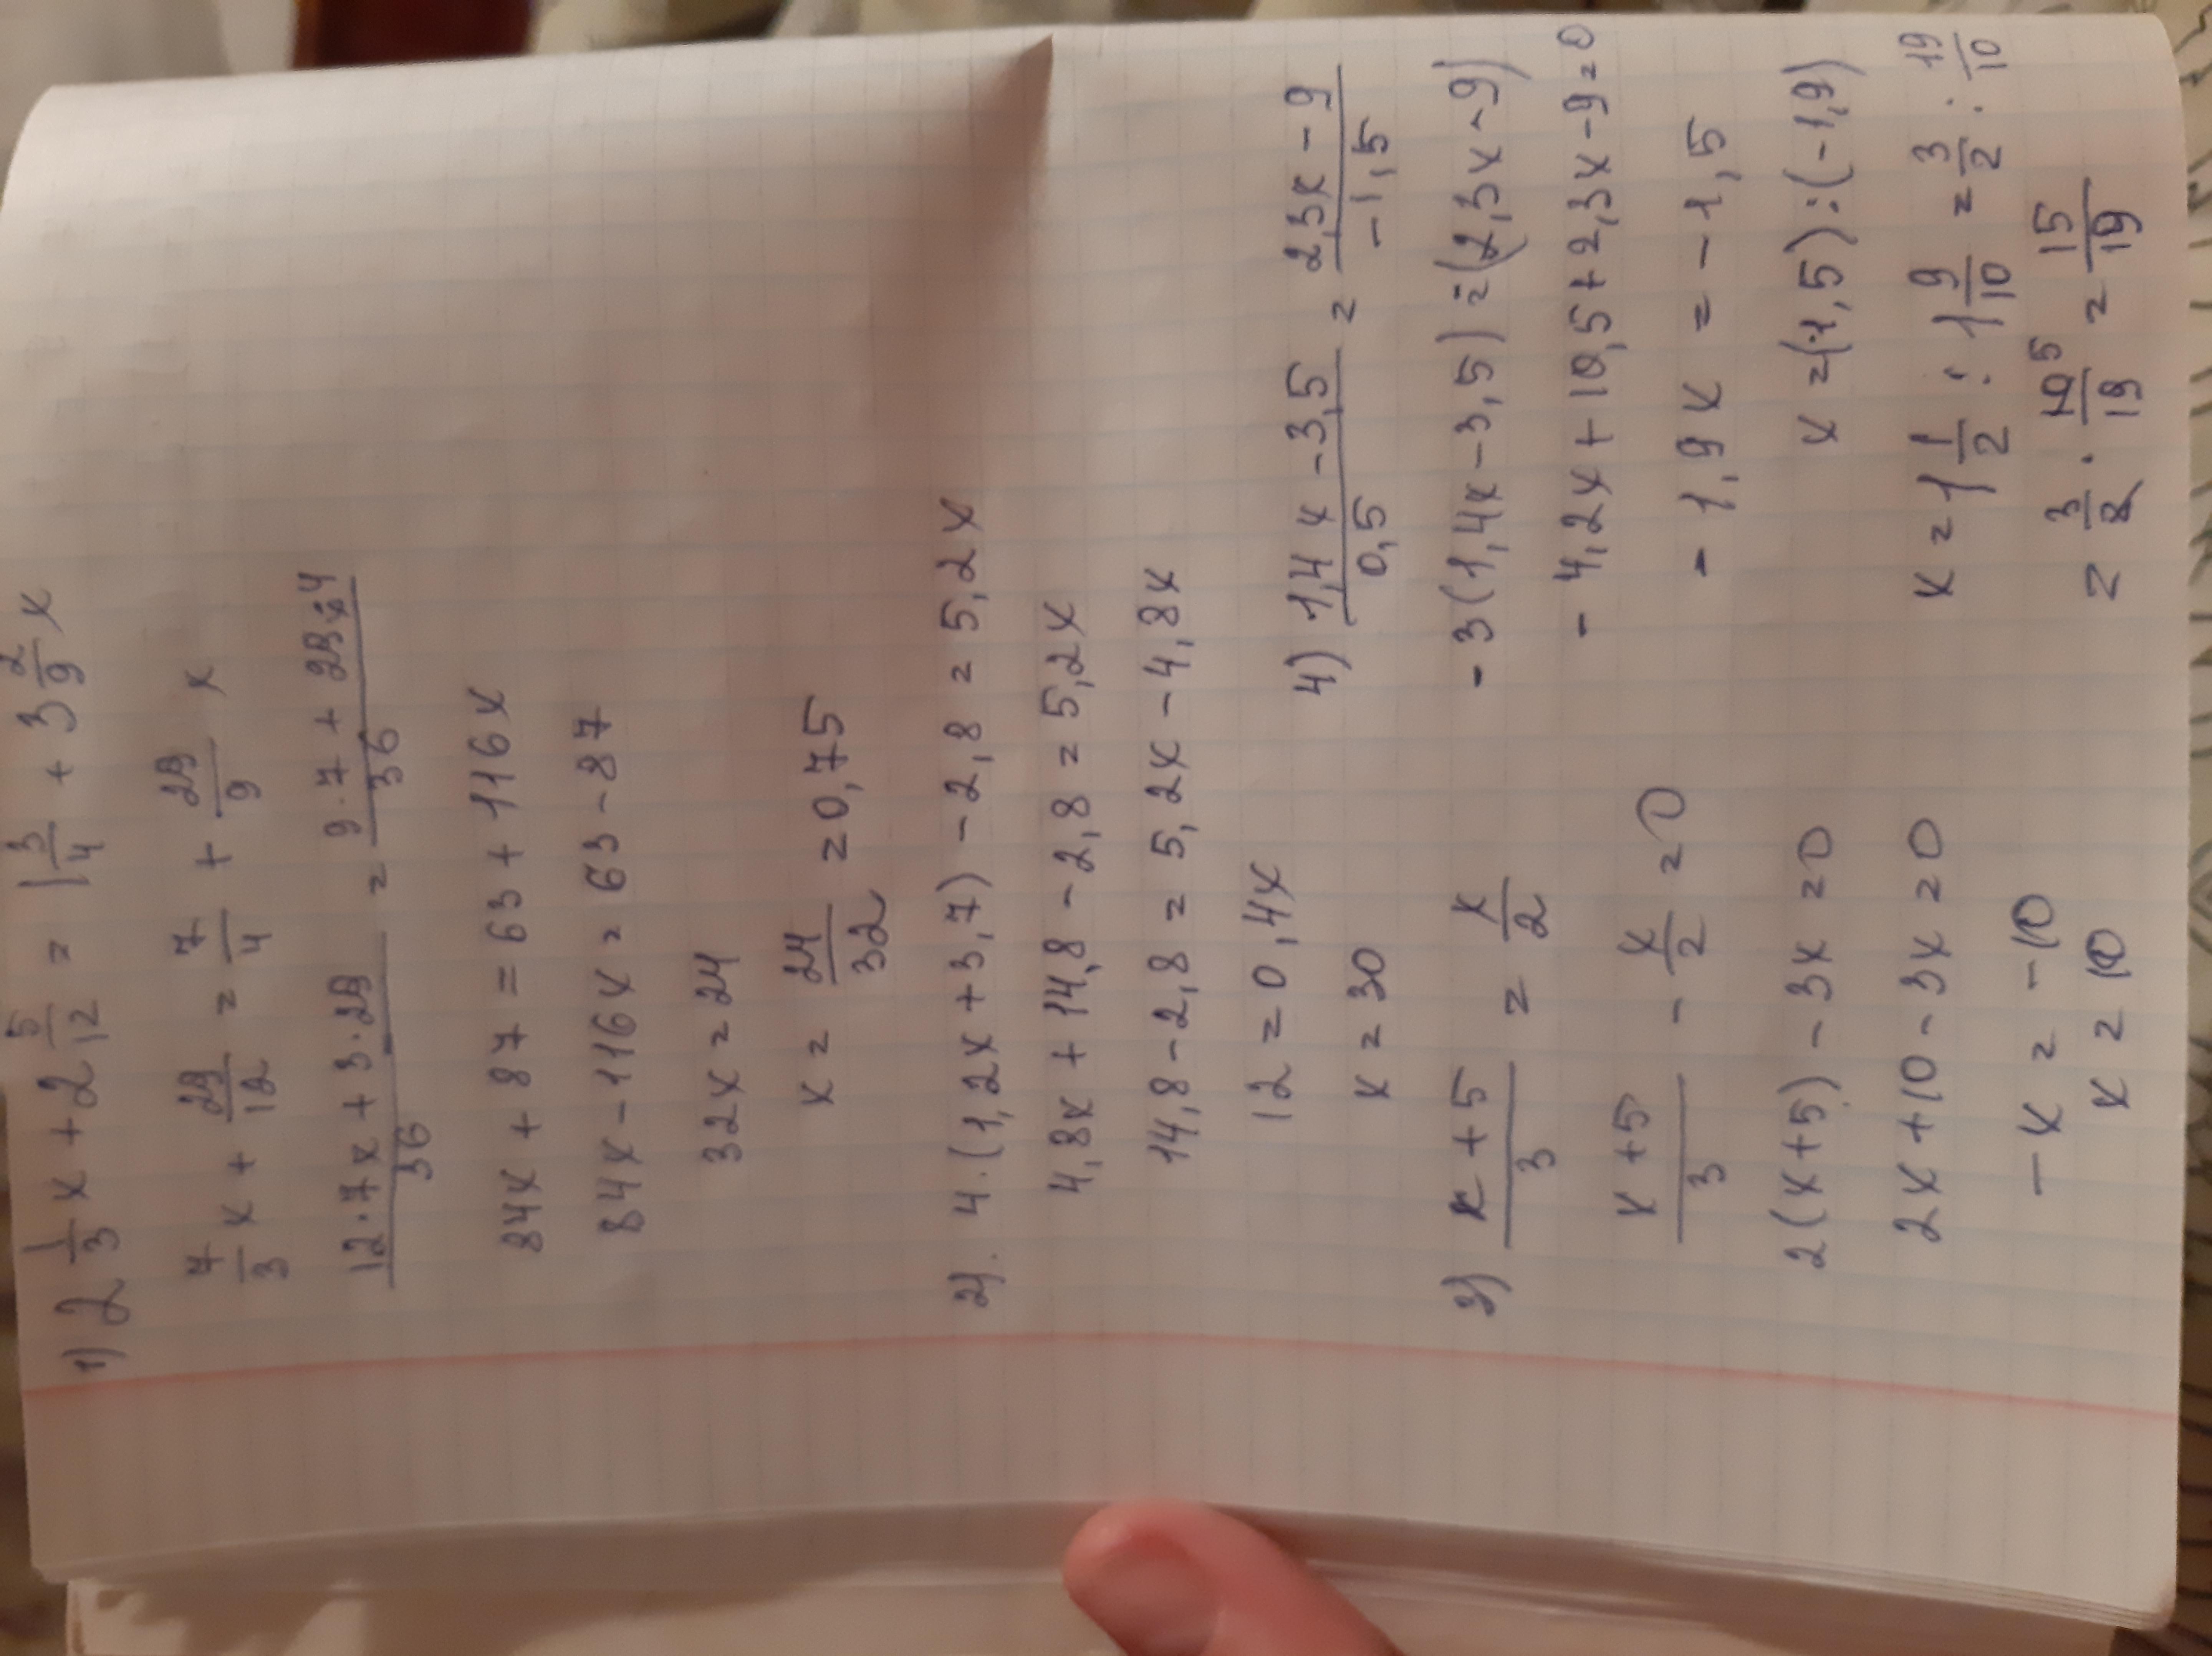 1) 2 1/3 x + 2 5/12 = 1 3/4 + 3 2/9 x
7/3 x + 29/12 = 7/4 + 29/9 x
(12·7x + 3·29)/36 = (9·7 + 29·4)/36
84x + 87 = 63 + 116x
84x - 116x = 63 - 87
32x = 24
x = 24/32 = 0,75
2). 4.(1,2x + 3,7) - 2,8 = 5,2x
4,8x + 14,8 - 2,8 = 5,2x
14,8 - 2,8 = 5,2x - 4,8x
12 = 0,4x
x = 30
3) (x + 5)/3 = x/2
(x + 5)/3 - x/2 = 0
2(x + 5) - 3x = 0
2x + 10 - 3x = 0
- x = - 10
x = 10
4) (1,4x - 3,5)/0,5 = (2,3x - 9)/-1,5
- 3(1,4x - 3,5) = (2,3x - 9)
- 4,2x + 10,5 + 2,3x - 9 = 0
- 1,9x = - 1,5
x = (-1,5) : (-1,9)
x = 1 1/2 : 1 9/10 = 3/2 : 19/10
= 3/2 · 10 5/19 = 15/19